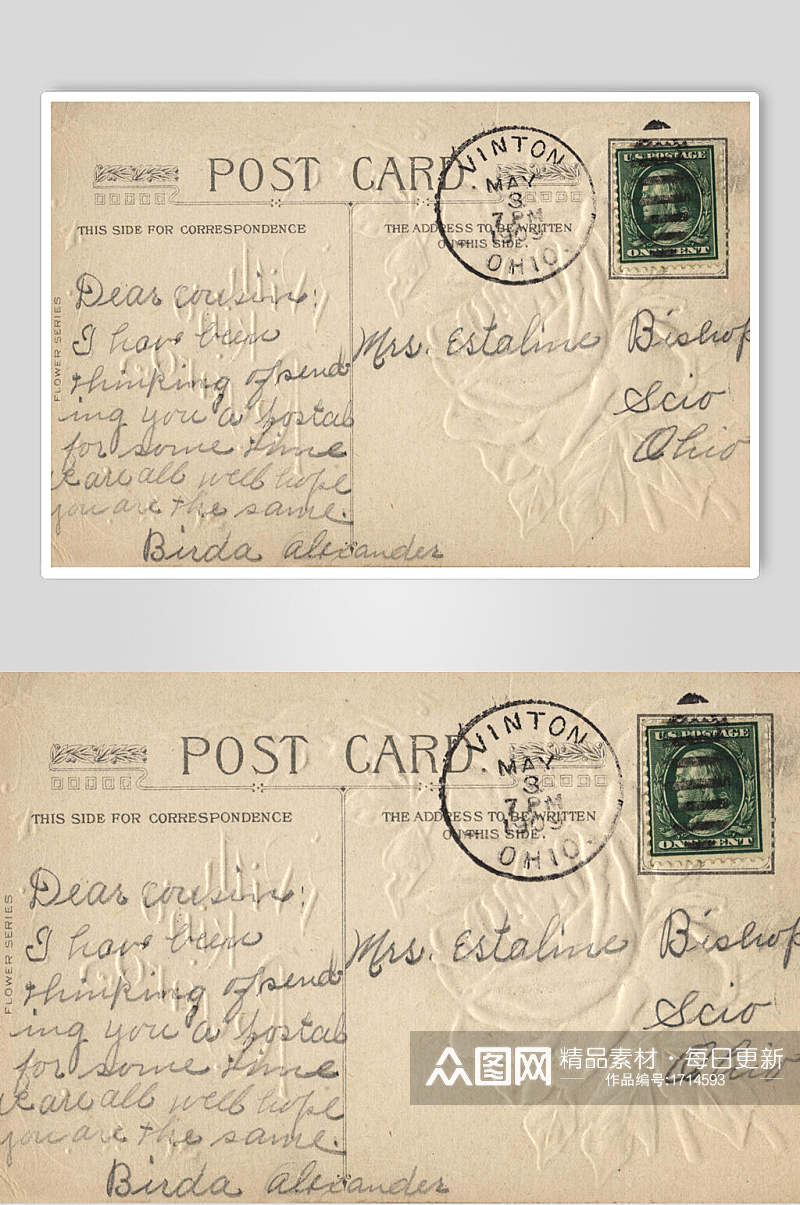 POST CARD.
VINTON
MAY
3
7 PM
1909
OHIO.
U.S. POSTAGE
ONE CENT
THIS SIDE FOR CORRESPONDENCE
THE ADDRESS TO BE WRITTEN
ON THIS SIDE.
FLOWER SERIES
Dear cousin:
I have been
thinking of send
ing you a postal
for some time
we are all well hope
you are the same.
Birda Alexander
Mrs. Estaline Bishop
Scio
Ohio
POST CARD.
VINTON
MAY
3
7 PM
1909
OHIO.
U.S. POSTAGE
ONE CENT
THIS SIDE FOR CORRESPONDENCE
THE ADDRESS TO BE WRITTEN
ON THIS SIDE.
FLOWER SERIES
Dear cousin:
I have been
thinking of send
ing you a postal
for some time
we are all well hope
you are the same.
Birda Alexander
Mrs. Estaline Bishop
Scio
Ohio
众图网
精品素材·每日更新
作品编号:1714593